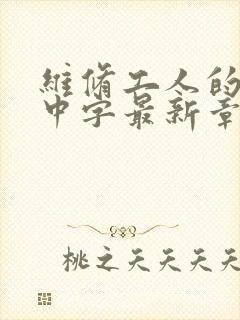 維脩工人的
中字最新章
桃之夭夭夭夭